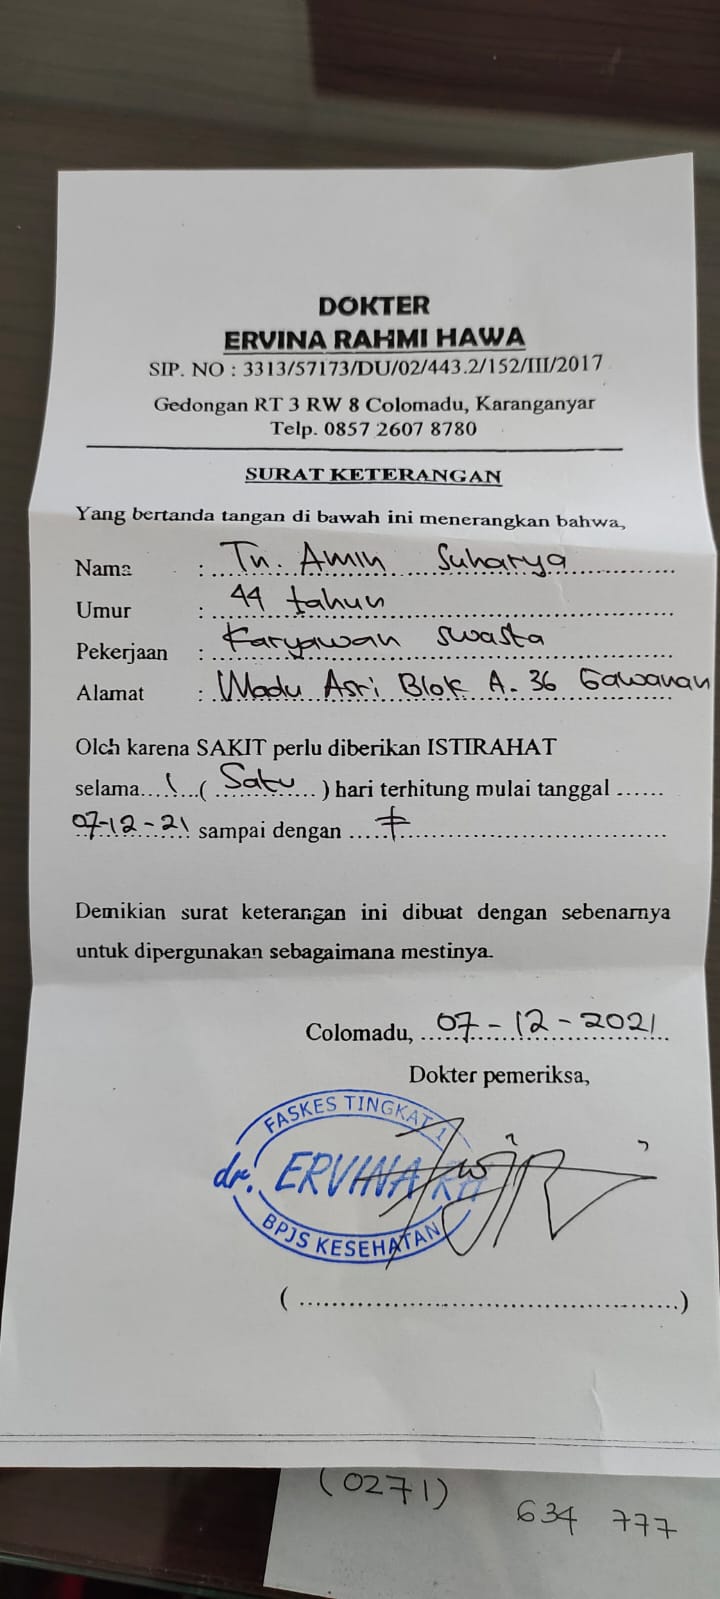 DOKTER
ERVINA RAHMI HAWA
SIP. NO : 3313/57173/DU/02/443.2/152/III/2017
Gedongan RT 3 RW 8 Colomadu, Karanganyar
Telp. 0857 2607 8780
SURAT KETERANGAN
Yang bertanda tangan di bawah ini menerangkan bahwa,
Nama : Tn. Amin Suharya
Umur : 44 tahun
Pekerjaan : Karyawan swasta
Alamat : Madu Asri Blok A. 36 Gawanan
Oleh karena SAKIT perlu diberikan ISTIRAHAT
selama...1...( Satu ) hari terhitung mulai tanggal ......
07-12-21 sampai dengan ......
Demikian surat keterangan ini dibuat dengan sebenarnya
untuk dipergunakan sebagaimana mestinya.
Colomadu, 07-12-2021
Dokter pemeriksa,
FASKES TINGKAT 1
dr. ERVINA RH
BPJS KESEHATAN
(......................................................)
(0271) 634 777